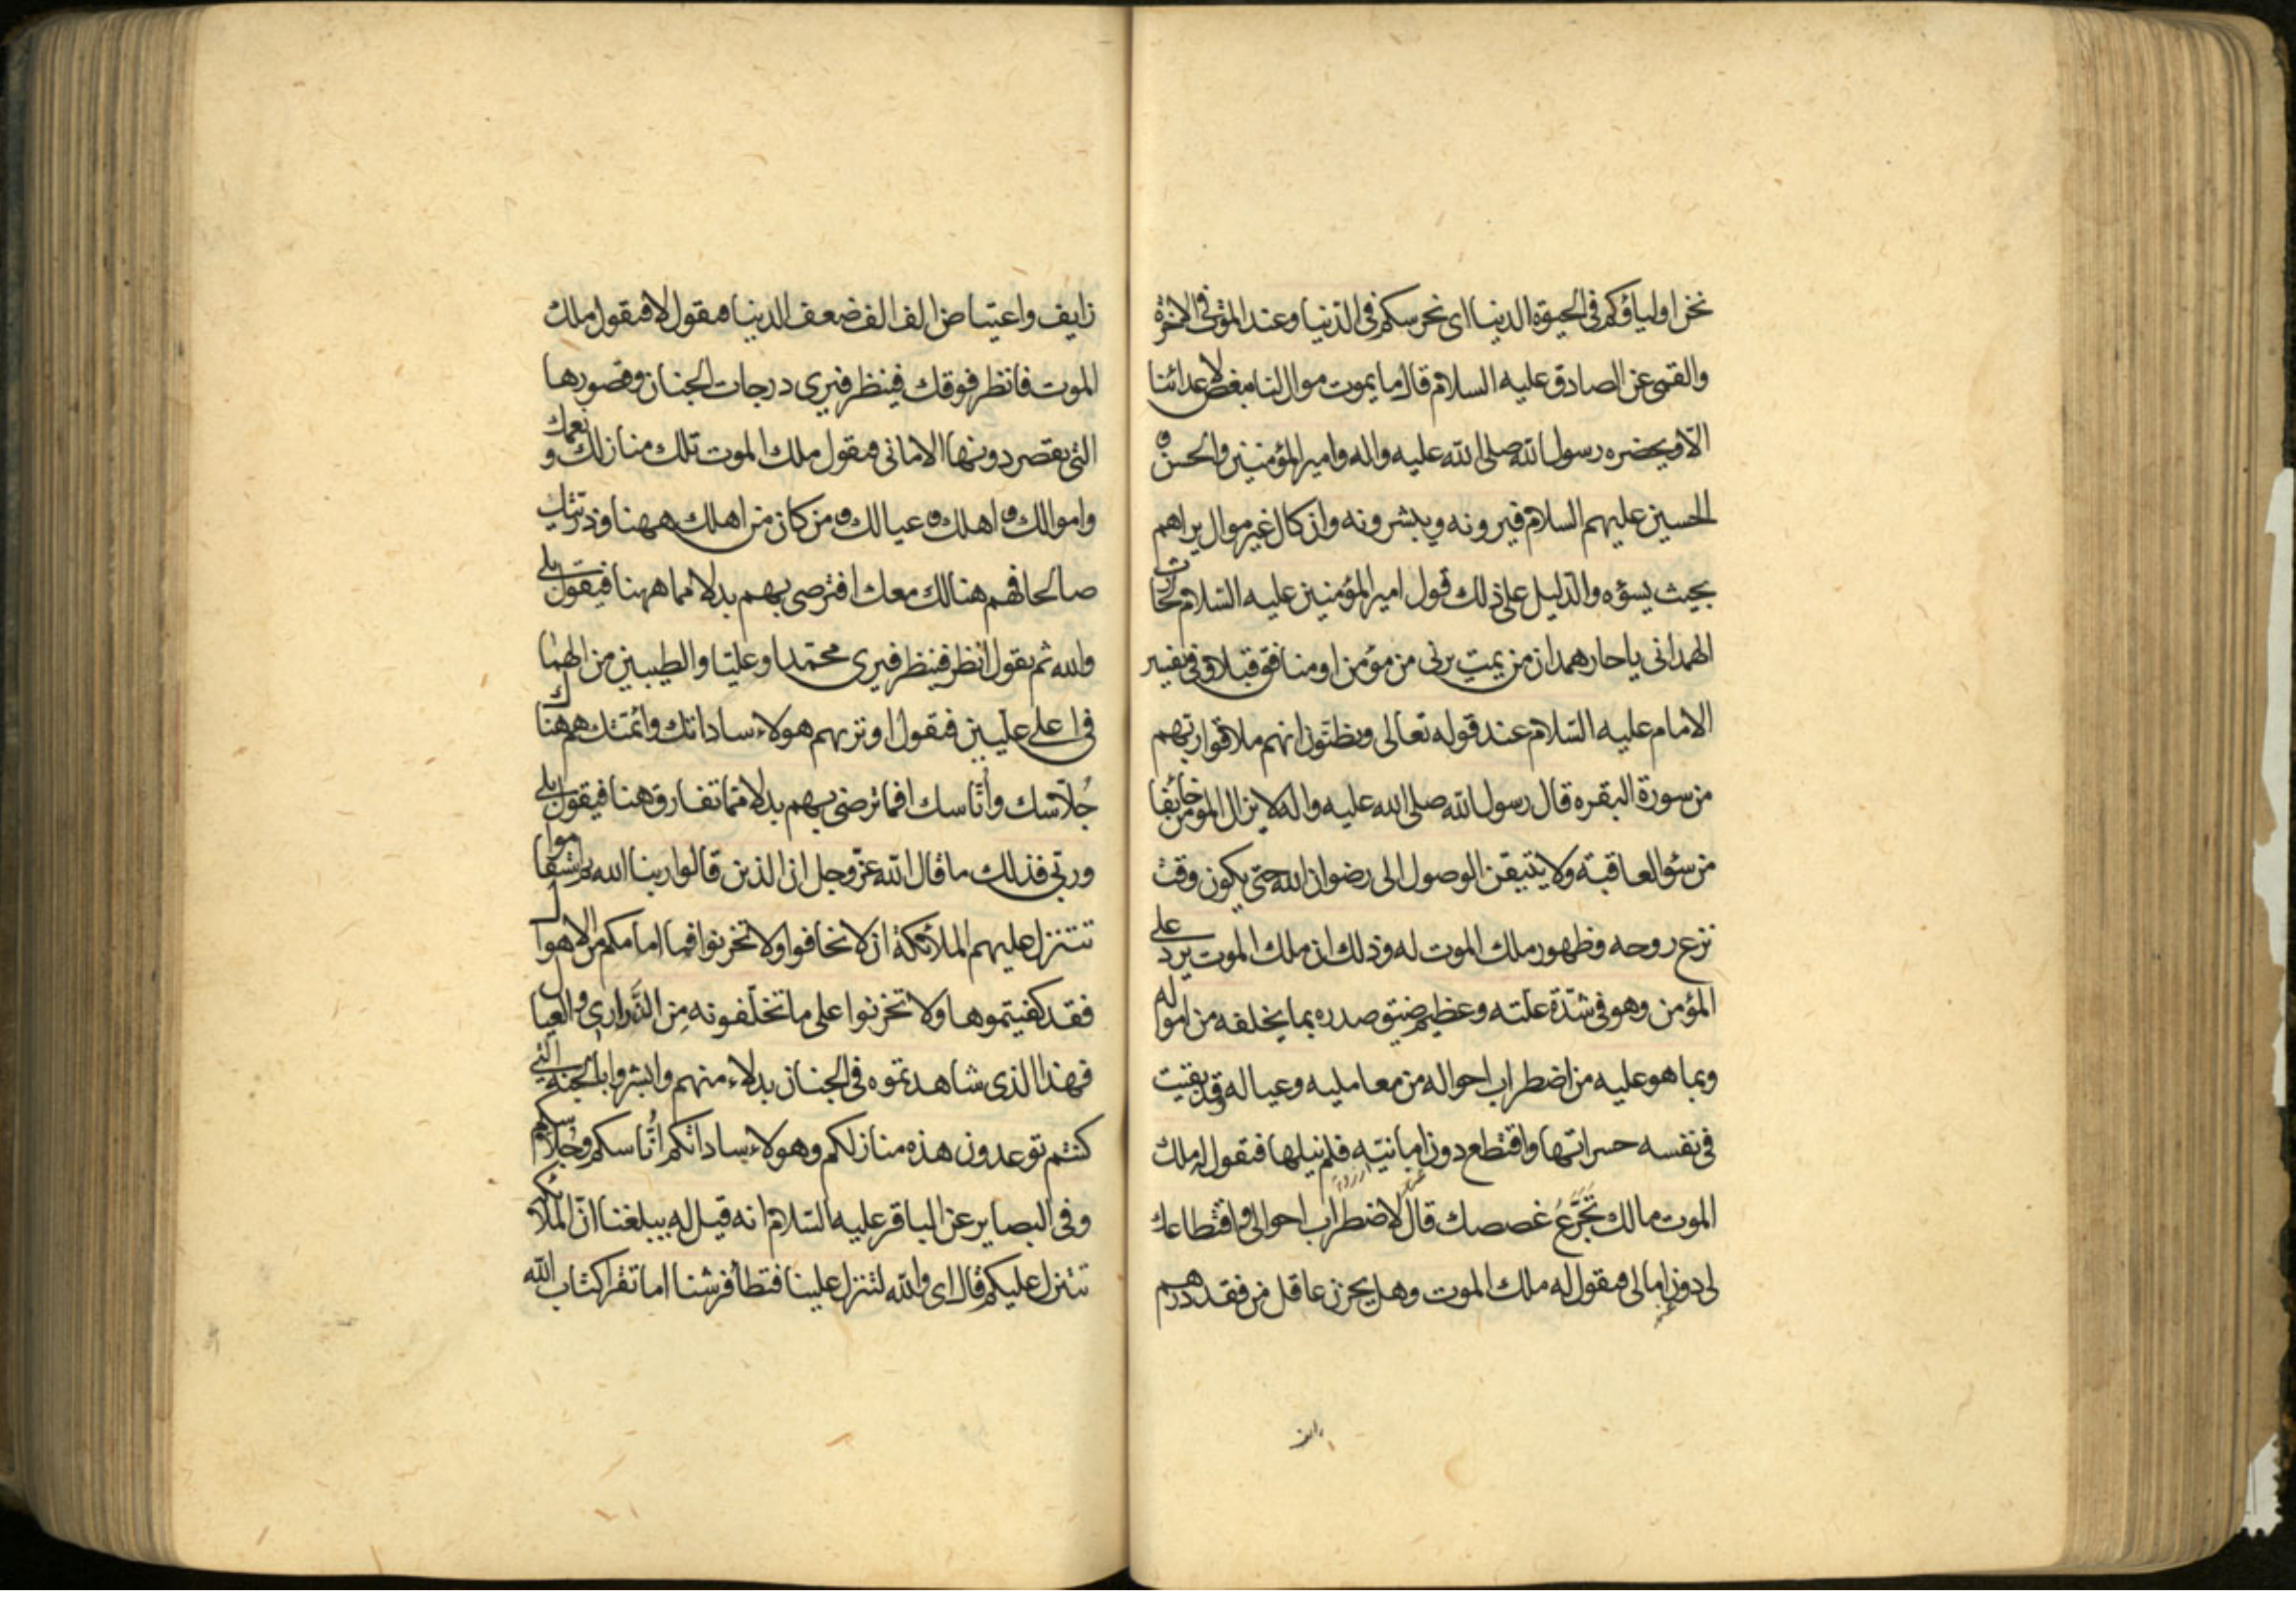 نحن اولياؤكم في الحيوة الدنيا اى نحرسكم في الدنيا وعند الموت في الاخرة
والقمى عن الصادق عليه السلام قال ما يموت موال لنا مبغض لاعدائنا
الا و يحضره رسول الله صلى الله عليه واله وامير المؤمنين والحسن و
الحسين عليهم السلام فيرونه ويبشرونه وان كان غير موال يراهم
بحيث يسؤه والدليل على ذلك قول امير المؤمنين عليه السلام لحارث
الهمدانى يا حار همدان من يمت يرنى من مؤمن او منافق قبلا وفى تفسير
الامام عليه السلام عند قوله تعالى ويظنون انهم ملاقوا ربهم
من سورة البقره قال رسول الله صلى الله عليه واله لا يزال المؤمن خايفا
من سؤ العاقبة ولا يتيقن الوصول الى رضوان الله حتى يكون وقت
نزع روحه وظهور ملك الموت له وذلك ان ملك الموت يرد على
المؤمن وهو في شدة علته وعظيم ضيق صدره بما يخلفه من امواله
وبما هو عليه من اضطراب احواله من معامليه وعياله وقد بقيت
في نفسه حسراتها واقتطع دون امانيه فلم ينلها فيقول له ملك
الموت مالك تجرع غصصك قال لاضطراب احوالى واقتطاعك
لى دون امالى فيقول له ملك الموت وهل يحزن عاقل من فقد درهم
زايف
زايف واعتياض الف الف ضعف الدنيا فيقول لا فيقول ملك
الموت فانظر فوقك فينظر فيرى درجات الجنان وقصورها
التى يقصر دونها الامانى فيقول ملك الموت تلك منازلك و نعمك
واموالك و اهلك و عيالك و من كان من اهلك ههنا وذريتك
صالحا فهم هنالك معك افترضى بهم بدلا مما ههنا فيقول بلى
والله ثم يقول انظر فينظر فيرى محمدا وعليا والطيبين من الهما
في اعلى عليين فيقول اوتريهم هولاء ساداتك وائمتك هم هناك
جلاسك وأناسك افما ترضى بهم بدلا مما تفارق هنا فيقول بلى
وربى فذلك ما قال الله عز وجل ان الذين قالوا ربنا الله ثم استقاموا
تتنزل عليهم الملائكة ان لا تخافوا ولا تحزنوا فما امامكم من الاهوال
فقد كفيتموها ولا تحزنوا على ما تخلفونه من الذرارى والعيال
فهذا الذى شاهدتموه في الجنان بدلاء منهم وابشروا بالجنة التى
كنتم توعدون هذه منازلكم وهولاء ساداتكم اناسكم وجلاسكم
وفي البصاير عن الباقر عليه السلام انه قيل له يبلغنا ان الملائكة
تتنزل عليكم قال اى والله لتنزل علينا فتطأ فرشنا اما تقرا كتاب الله